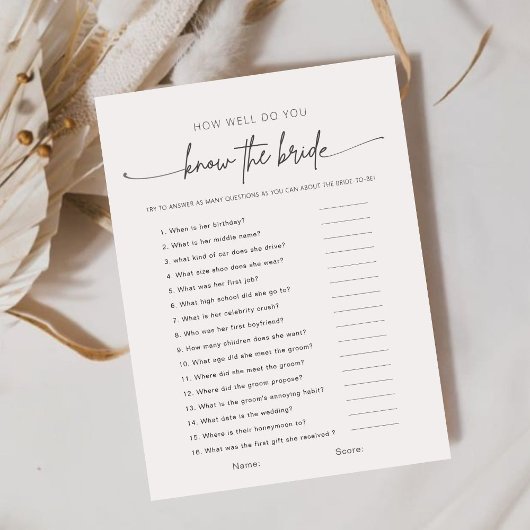 HOW WELL DO YOU
know the bride
TRY TO ANSWER AS MANY QUESTIONS AS YOU CAN ABOUT THE BRIDE-TO-BE!
1. When is her birthday?
2. What is her middle name?
3. what kind of car does she drive?
4. What size shoe does she wear?
5. What was her first job?
6. What high school did she go to?
7. What is her celebrity crush?
8. Who was her first boyfriend?
9. How many children does she want?
10. What age did she meet the groom?
11. Where did she meet the groom?
12. Where did the groom propose?
13. What is the groom's annoying habit?
14. What date is the wedding?
15. Where is their honeymoon to?
16. What was the first gift she received ?
Name: Score: